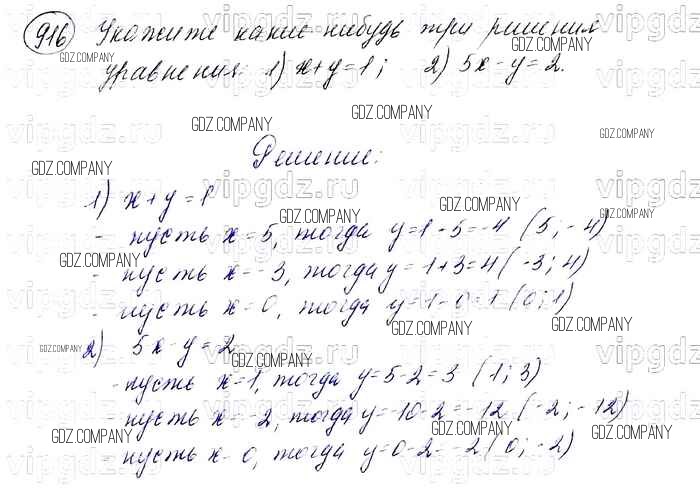 916 Укажите какие нибудь три решения
уравнения: 1) x+y=1; 2) 5x-y=2.
Решение:
1) x+y=1
- пусть x=5, тогда y=1-5=-4 (5;-4)
- пусть x=-3, тогда y=1+3=4 (-3;4)
- пусть x=0, тогда y=1-0=1 (0;1)
2) 5x-y=2
- пусть x=1, тогда y=5-2=3 (1;3)
- пусть x=-2, тогда y=-10-2=-12 (-2;-12)
- пусть x=0, тогда y=0-2=-2 (0;-2)
GDZ.COMPANY
vipgdz.ru